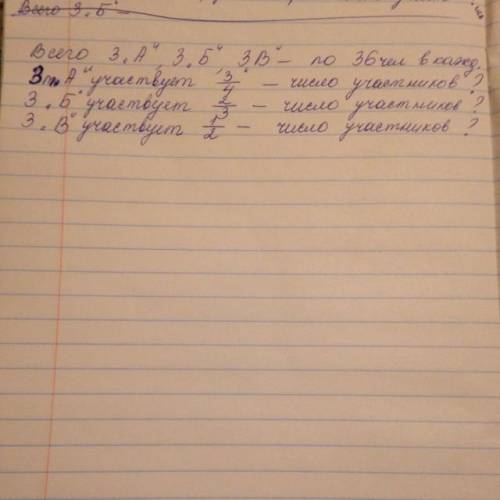 Всего 3 „Б" –
Всего 3 „А", 3 „Б", 3В" – по 36 чел в кажд.
3 „А" участвует 3/4 – число участников ?
3 „Б" участвует 2/3 – число участников ?
3 „В" участвует 1/2 – число участников ?